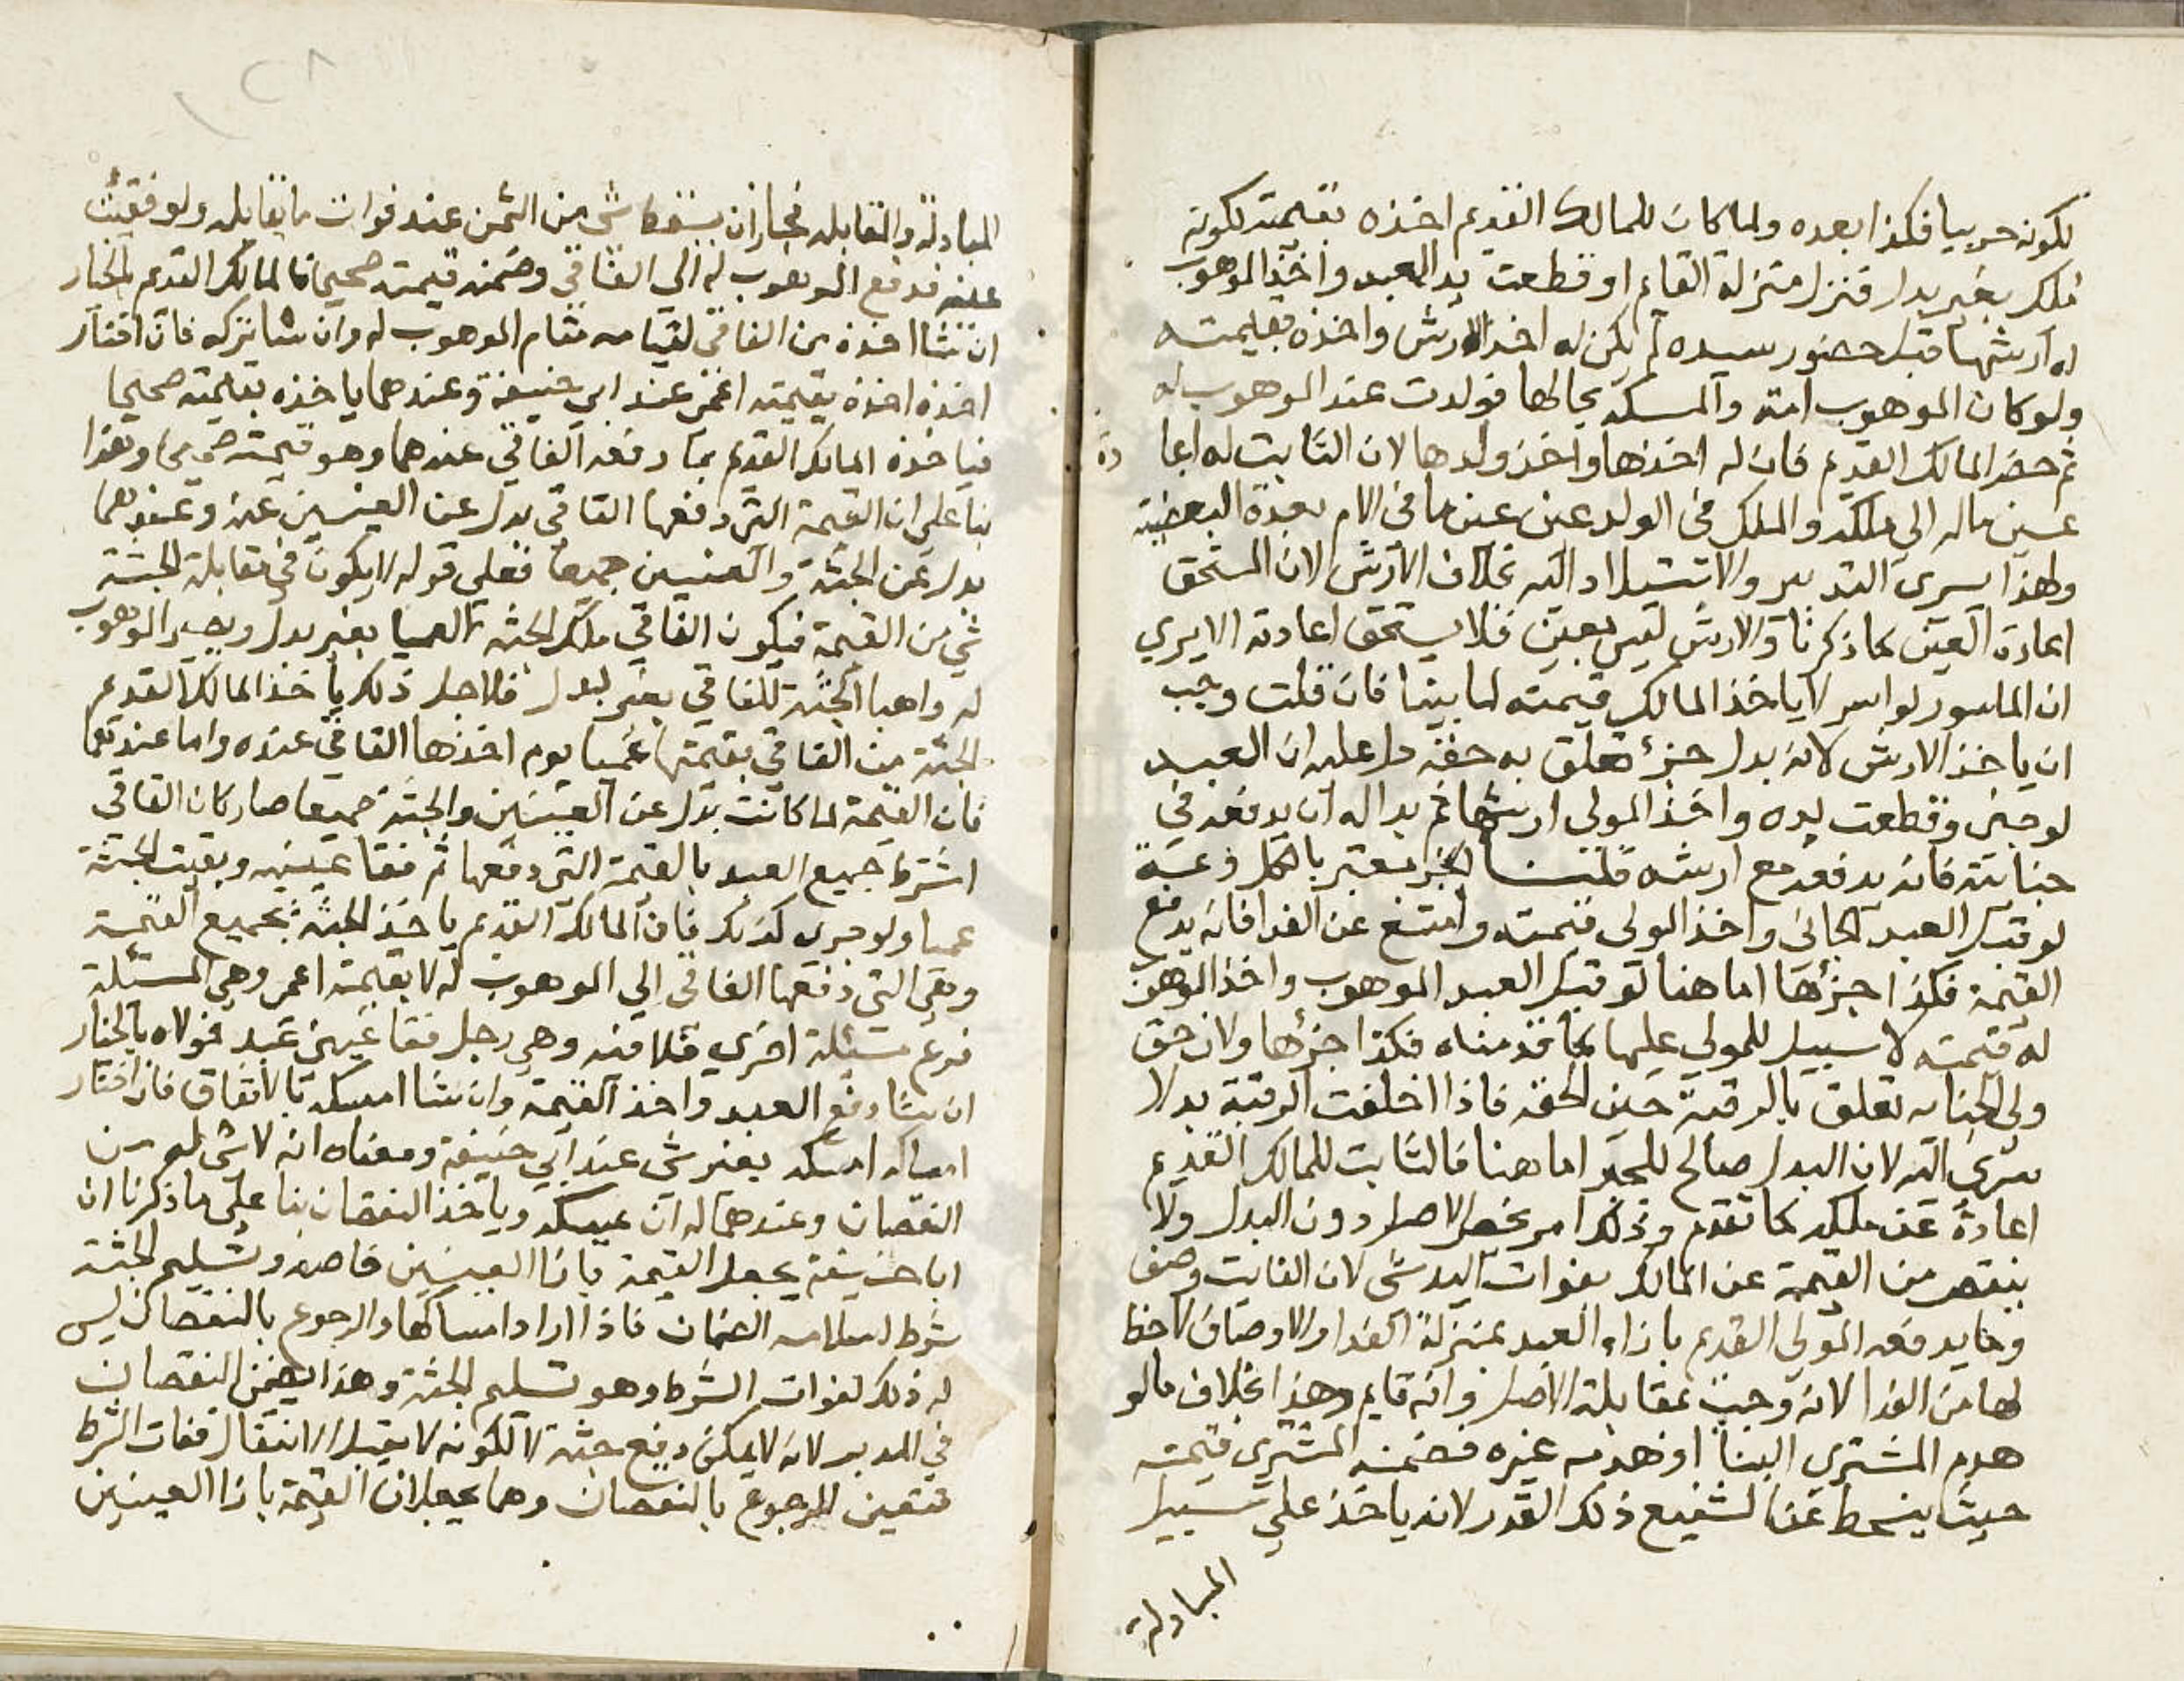 لكونه حربيا فكذا بعده ولما كان للمالك القديم اخذه بقيمته لكونه
ملك بغير بدل فنزل منزلة القايم او قطعت يد العبد واخذ الموهوب
له ارشها قبل حضور سيده لم يكن له اخذ الارش واخذه بقيمته
ولو كان الموهوب امة والمسئلة بحالها فولدت عند الموهوب له
ثم حضر المالك القديم فان له اخذها واخذ ولدها لان الثابت له اعا
دة
عين ماله الى ملكه والملك في الولد عين عين ما في الام بعدة البعضية
ولهذا يسرى التدبير والاستيلاد اليه بخلاف الارش لان المستحق
اعادة العين كما ذكرنا والارش ليس بعين فلا يستحق اعادته الا يري
ان الماسور لو اسر لا ياخذ المالك قيمته لما بينا فان قلت وجب
ان ياخذ الارش لانه بدل جزء تعلق به حقه دل عليه ان العبد
لو جنى وقطعت يده واخذ المولى ارشها ثم بدا له ان يدفعه في
جنايته فانه يدفعه مع ارشه قلنا الجزء معتبر بالكل وعمة
لو قتل العبد الجاني واخذ المولى قيمته وامتنع عن الفدا فانه يدفع
القيمة فكذا جزؤها اما هنا لو قتل العبد الموهوب واخذ الموهوب
له قيمته لا سبيل للمولى عليها كما قدمناه فكذا جزؤها ولان حق
ولي الجناية تعلق بالرقبة حين لحقه فاذا اخلفت الرقبة بدلا
سرى اليه لان البدل صالح للحق اما هنا فالثابت للمالك القديم
اعادة عين ملكه كما تقدم وذلك امر يخص الاصل دون البدل ولا
ينقص من القيمة عن المالك بفوات اليد شى لان الفايت وصف
وما يدفعه المولى القديم بازاء العبد بمنزلة الفدا والاوصاف لاحظ
لها من الفدا لانه وجب بمقابلة الاصل وانه قايم وهذا بخلاف ما لو
هدم المشترى البنا او هدمه غيره فضمنه المشترى قيمته
حيث ينحط عن الشفيع ذلك القدر لانه ياخذ على سبيل
المبادلة
المبادلة والمقابلة فجاز ان يسقط شى من الثمن عند فوات ما يقابله ولو فقئت
عينه فدفع الموهوب له الى الفاقي وضمنه قيمته صحيحا فالمالك القديم بالخيار
ان شا اخذه من الفاقي لقيامه مقام الموهوب له وان شا تركه فان اختار
اخذه اخذه بقيمته اعمى عند ابي حنيفة وعندهما ياخذه بقيمته صحيحا
فياخذه المالك القديم بما دفعه الفاقي عندهما وهو قيمته صحيحا وهذا
بنا على ان القيمة التي دفعها الفاقي بدل عن العينين عنده وعندهما
بدل عن الجثة والعينين جميعا فعلى قوله لا يكون في مقابلة الجثة
شي من القيمة فيكون الفاقي ملك الجثة العميا بغير بدل ويصير الموهوب
له واهبا الجثة للفاقي بغير بدل فلاجل ذلك ياخذ المالك القديم
الجثة من الفاقي بقيمتها عميا يوم اخذها الفاقي عنده واما عندهما
فان القيمة لما كانت بدل عن العينين والجثة جميعا صار كان الفاقي
اشترى جميع العبد بالقيمة التي دفعها ثم فقا عينيه وبقيت الجثة
عميا ولو جرى كذلك فان المالك القديم ياخذ الجثة بجميع القيمة
وهي التي دفعها الفاقي الى الموهوب له لا بقيمة اعمى وهي المسئلة
فرع مسئلة اخرى خلافية وهي رجل فقا عيني عبد فمولاه بالخيار
ان شا دفع العبد واخذ القيمة وان شا امسكه بالاتفاق فان اختار
امساكه امسكه بغير شى عند ابي حنيفة ومعناه انه لا شى له من
النقصان وعندهما له ان يمسكه وياخذ النقصان بنا على ما ذكرنا ان
ابا حنيفة يجعل القيمة بازا العينين خاصة وتسليم الجثة
شرط لسلامة الضمان فاذا اراد امساكها والرجوع بالنقصان ليس
له ذلك لفوات الشرط وهو تسليم الجثة وهذا يضمن النقصان
في المدبر لانه لا يمكن دفع جثته لكونه لا يقبل الانتقال ففات الشرط
فتعين الرجوع بالنقصان وهما يجعلان القيمة بازا العينين